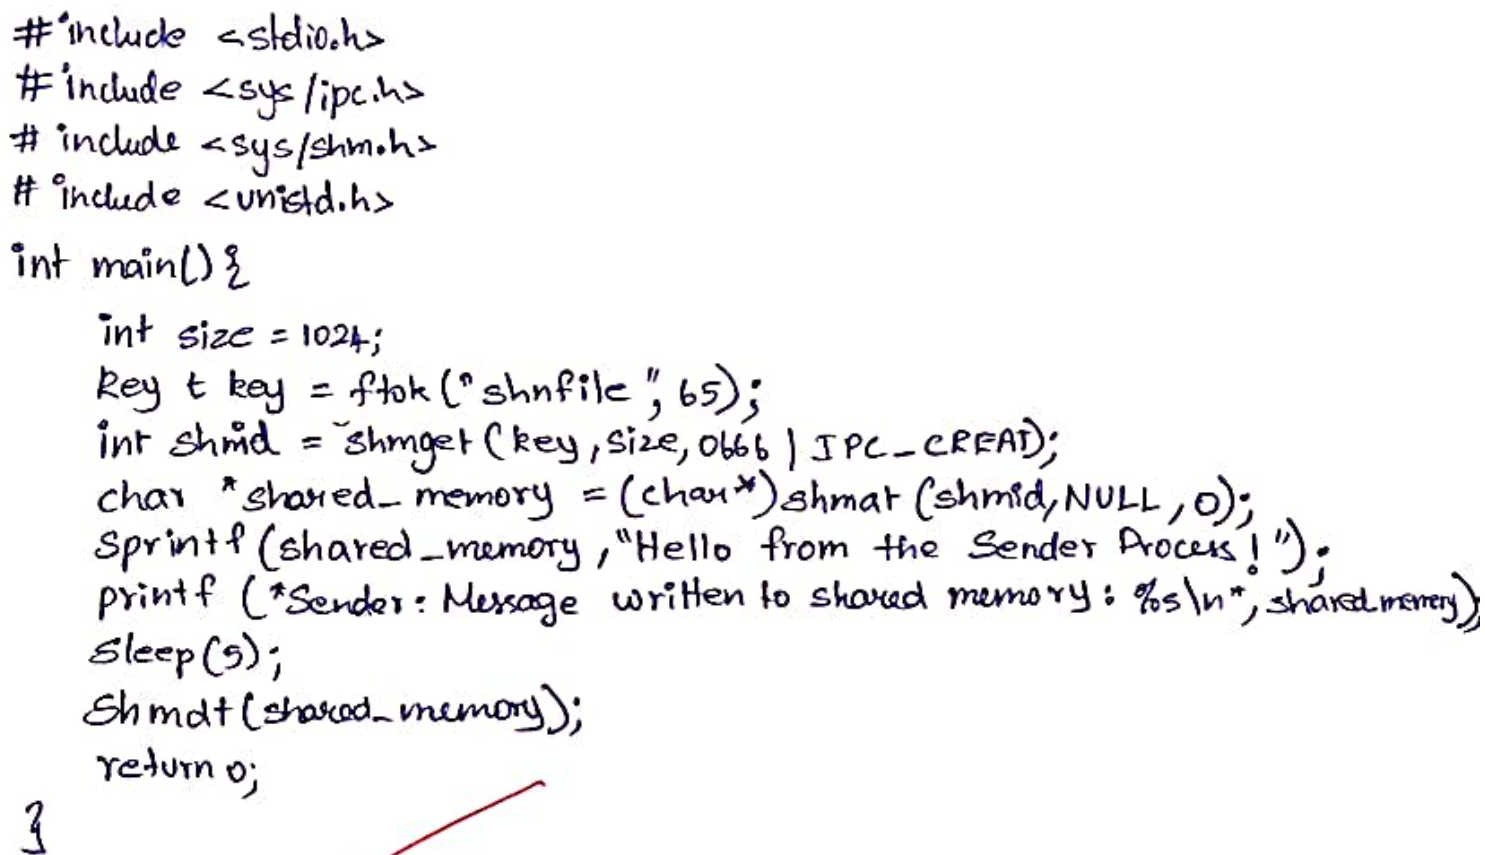 #include <stdio.h>
#include <sys/ipc.h>
# include <sys/shm.h>
# include <unistd.h>
int main() {
int size = 1024;
key t key = ftok("shnfile", 65);
int shmid = shmget(key, size, 0666 | IPC_CREAT);
char *shared_memory = (char*)shmat(shmid, NULL, 0);
sprintf(shared_memory, "Hello from the Sender Process!");
printf (*Sender: Message written to shared memory: %s\n*, shared_memory);
sleep(5);
shmdt(shared_memory);
return 0;
}